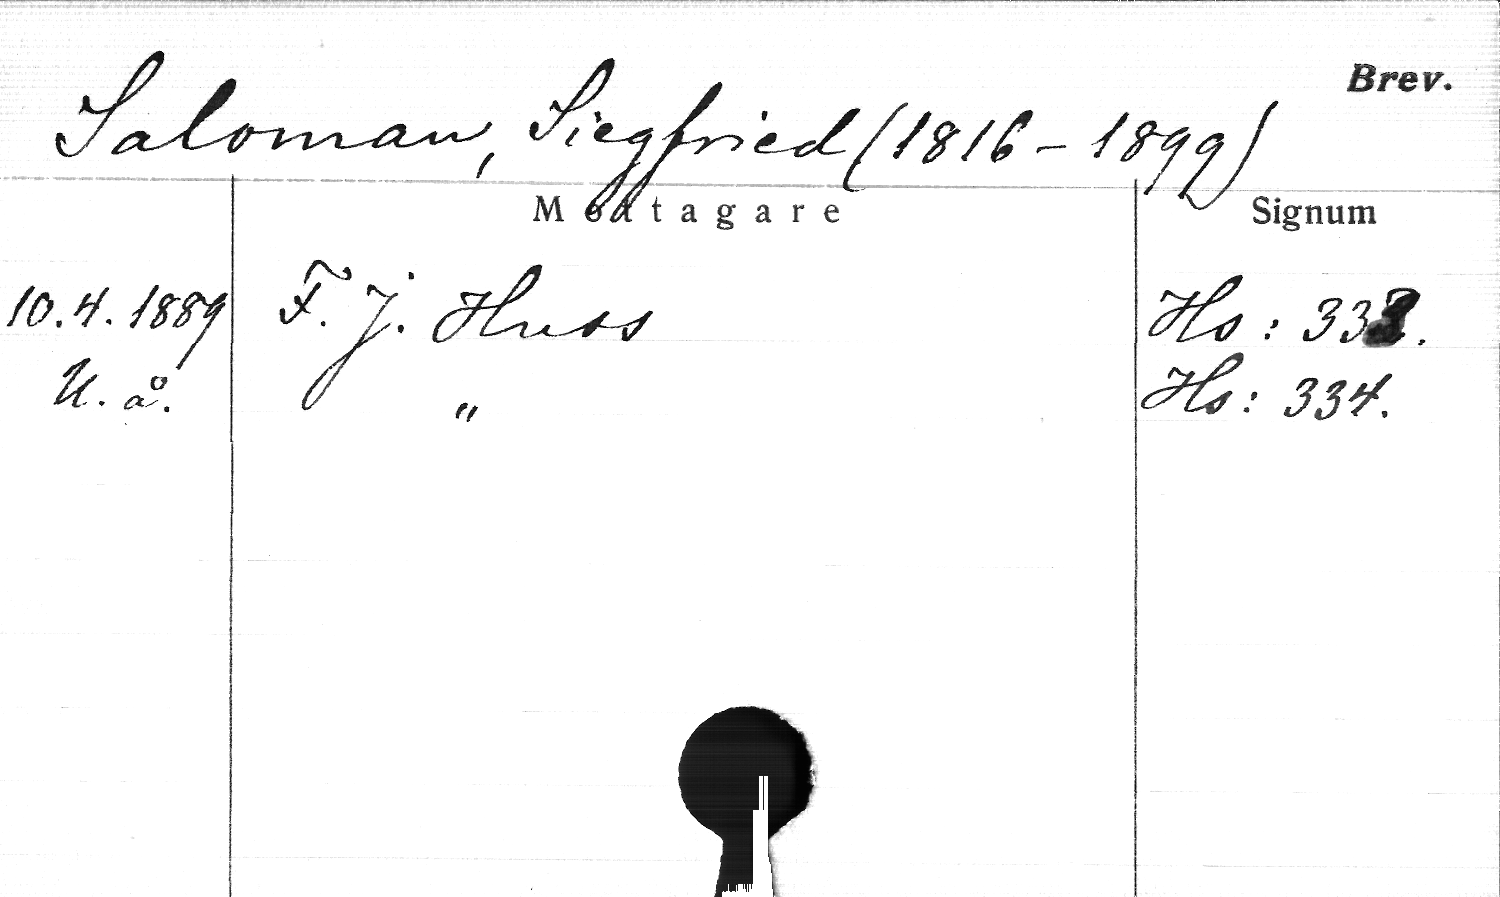 Brev.
Saloman, Siegfried (1816-1899)
Mottagare Signum
10.4.1889 F. J. Huss Hs: 333.
U. å. " Hs: 334.